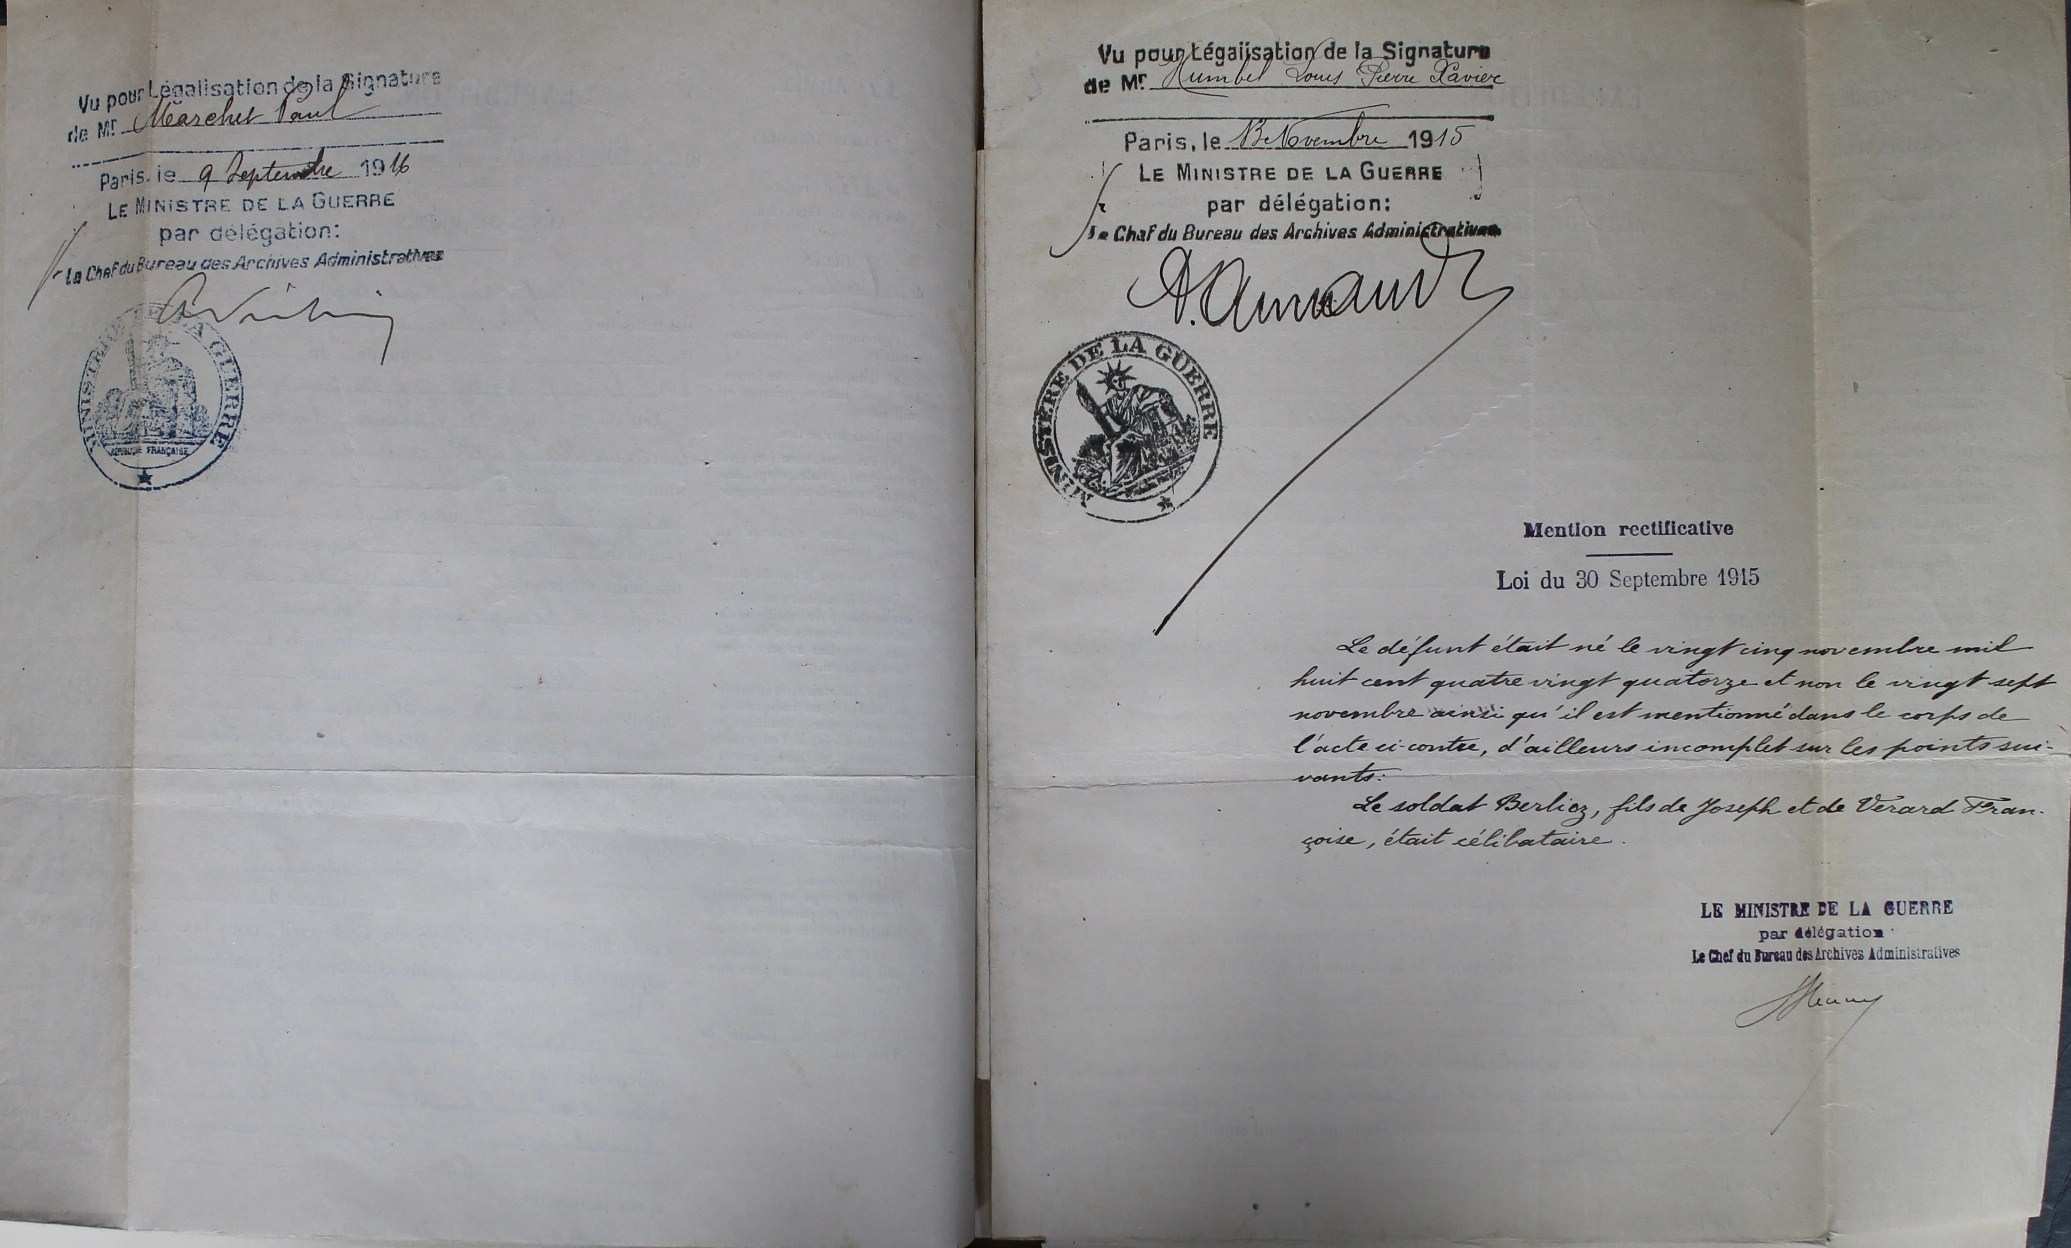 Vu pour Légalisation de la Signature
de Mr Marchet Paul
Paris, le 9 Septembre 1916
LE MINISTRE DE LA GUERRE
par délégation:
Le Chef du Bureau des Archives Administratives
MINISTÈRE DE LA GUERRE
RÉPUBLIQUE FRANÇAISE
Vu pour Légalisation de la Signature
de Mr Humbel Louis Pierre Xavier
Paris, le 13 Novembre 1915
LE MINISTRE DE LA GUERRE
par délégation:
le Chef du Bureau des Archives Administratives
MINISTÈRE DE LA GUERRE
Mention rectificative
Loi du 30 Septembre 1915
Le défunt était né le vingt cinq novembre mil
huit cent quatre vingt quatorze et non le vingt sept
novembre ainsi qu'il est mentionné dans le corps de
l'acte ci-contre, d'ailleurs incomplet sur les points sui-
vants:
Le soldat Berlioz, fils de Joseph et de Verard Fran-
çoise, était célibataire.
LE MINISTRE DE LA GUERRE
par délégation
Le Chef du Bureau des Archives Administratives